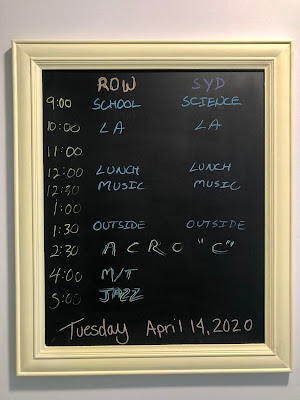 ROW SYD
9:00 SCHOOL SCIENCE
10:00 LA LA
11:00
12:00 LUNCH LUNCH
12:30 MUSIC MUSIC
1:00
1:30 OUTSIDE OUTSIDE
2:30 ACRO "C"
4:00 M/T
5:00 JAZZ
Tuesday April 14, 2020